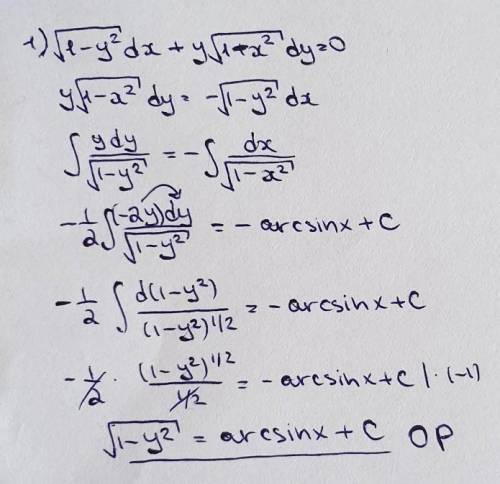 1) √(1-y²) dx + y√(1-x²) dy=0
y√(1-x²) dy = -√(1-y²) dx
∫ ydy/√(1-y²) = -∫ dx/√(1-x²)
-1/2 ∫ (-2y)dy/√(1-y²) = -arcsinx+C
-1/2 ∫ d(1-y²)/(1-y²)^1/2 = -arcsinx+C
-1/2 · (1-y²)^1/2/1/2 = -arcsinx+C |·(-1)
√(1-y²) = arcsinx+C OP